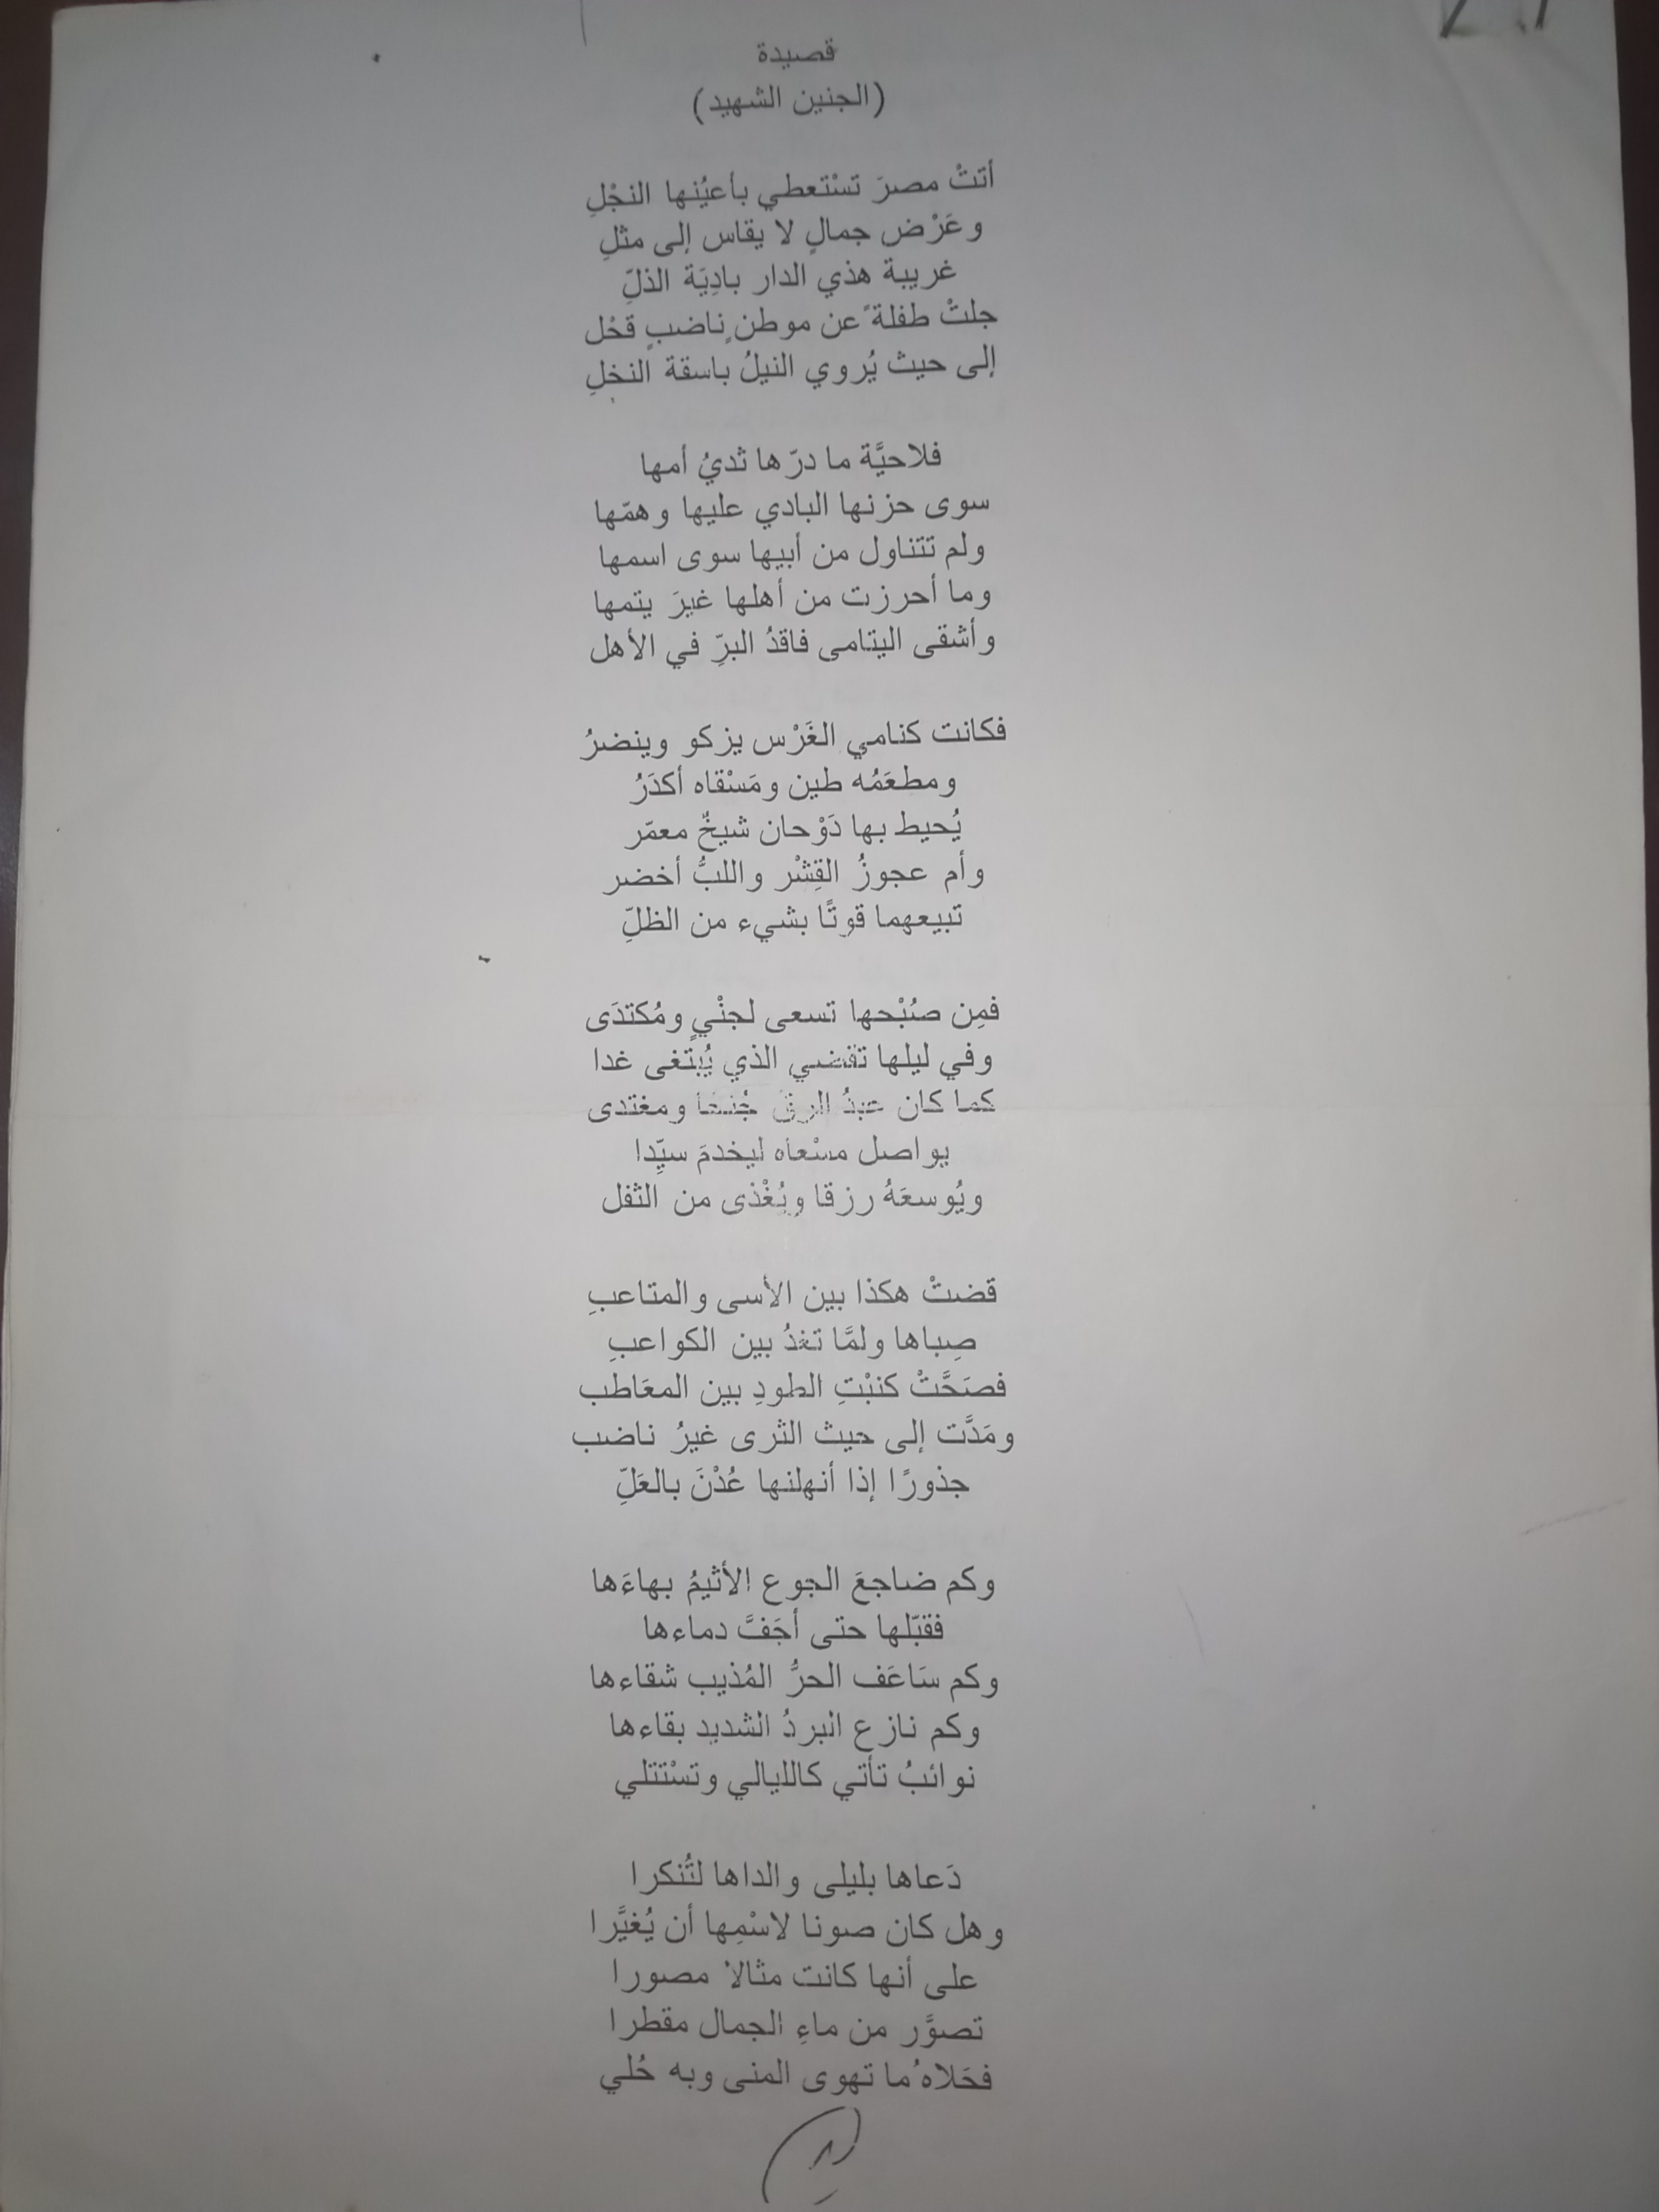 قصيدة
(الجنين الشهيد)
أتتْ مصرَ تسْتعطي بأعيُنها النجْلِ
وعَرْض جمالٍ لا يقاس إلى مثلِ
غريبة هذي الدار بادِيَة الذلِّ
جلتْ طفلةً عن موطنٍ ناضبٍ قحْل
إلى حيث يُروي النيلُ باسقة النخلِ
فلاحيَّة ما درّها ثديُ أمها
سوى حزنها البادي عليها وهمّها
ولم تتناول من أبيها سوى اسمها
وما أحرزت من أهلها غيرَ يتمها
وأشقى اليتامى فاقدُ البرِّ في الأهل
فكانت كنامي الغَرْس يزكو وينضرُ
ومطعَمُه طين ومَسْقاه أكدَرُ
يُحيط بها دَوْحان شيخٌ معمّر
وأم عجوزُ القِشْر واللبُّ أخضر
تبيعهما قوتًا بشيء من الظلِّ
فمِن صُبْحها تسعى لجنْيٍ ومُكتدَى
وفي ليلها تقضي الذي يُبتغى غدا
كما كان عبدُ الرقِّ جُنحًا ومغتدى
يواصل مسْعاه ليخدمَ سيِّدا
ويُوسعَهُ رزقا ويُغْذى من الثفل
قضتْ هكذا بين الأسى والمتاعبِ
صِباها ولمَّا تغدُ بين الكواعبِ
فصَحَّتْ كنبْتِ الطودِ بين المعَاطب
ومَدَّت إلى حيث الثرى غيرُ ناضب
جذورًا إذا أنهلنها عُدْنَ بالعَلِّ
وكم ضاجعَ الجوع الأثيمُ بهاءَها
فقبّلها حتى أجَفَّ دماءها
وكم سَاعَف الحرُّ المُذيب شقاءها
وكم نازع البردُ الشديد بقاءها
نوائبُ تأتي كالليالي وتسْتتلي
دَعاها بليلى والداها لتُنكرا
وهل كان صونا لاسْمِها أن يُغيَّرا
على أنها كانت مثالا مصورا
تصوَّر من ماءِ الجمال مقطرا
فحَلاهُ ما تهوى المنى وبه حُلي